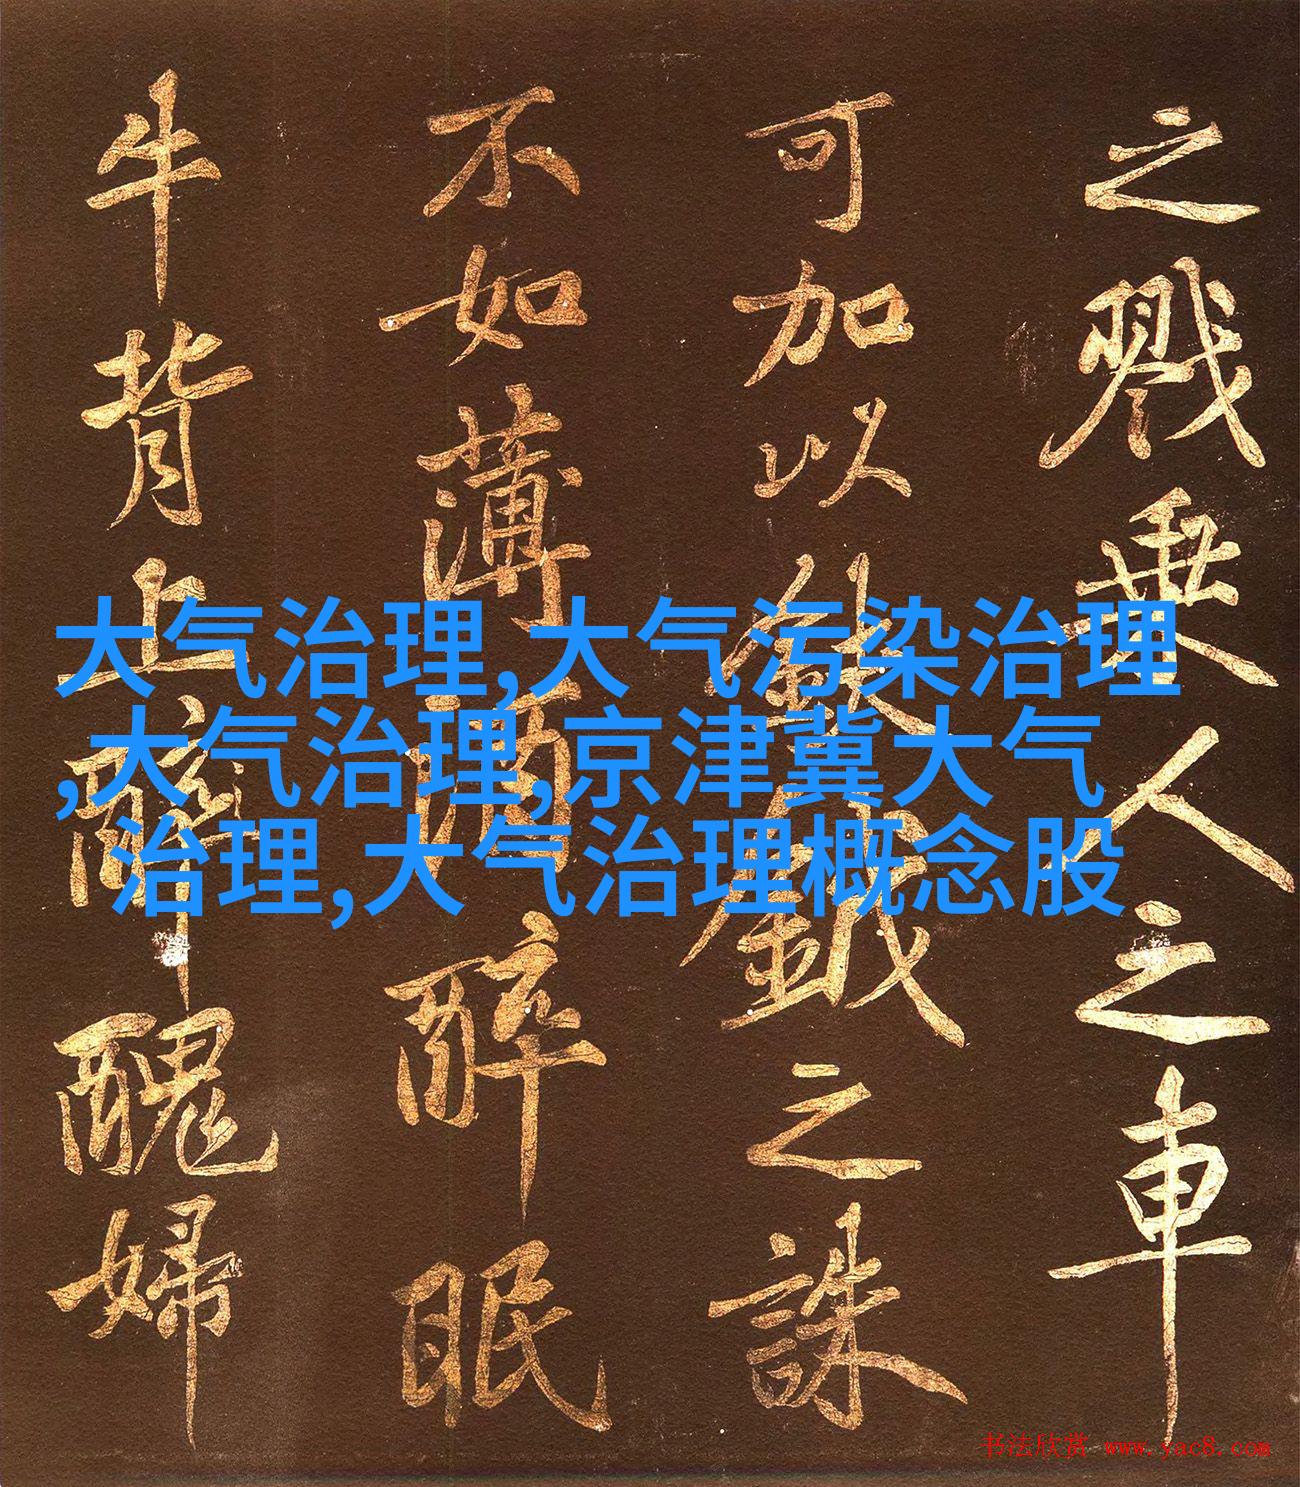 之戮乘人之車
可加以鈇鉞之誅
不如薄酒醉眠
牛背上醉醜婦
大气治理,大气污染治理
,大气治理,京津冀大气
治理,大气治理概念股
书法欣赏 www.yac8.com